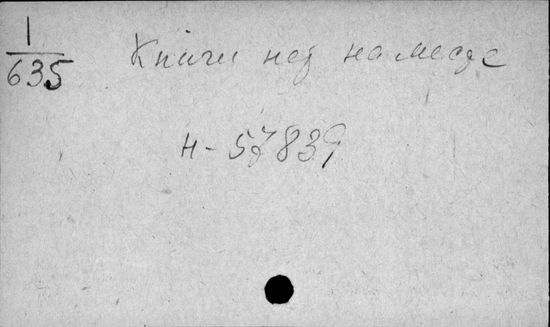 1
635
Книги нет на месте
н-57839